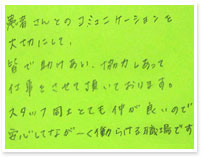 患者さんとのコミュニケーションを
大切にして、
皆で助けあい、協力しあって
仕事をさせて頂いております。
スタッフ同士とても仲が良いので
安心してながーく働らける職場です